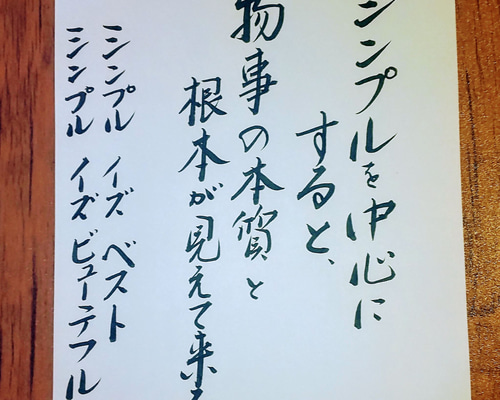 シンプルを中心に
すると、
物事の本質と
根本が見えて来る
シンプル イズ ベスト
シンプル イズ ビューテフル